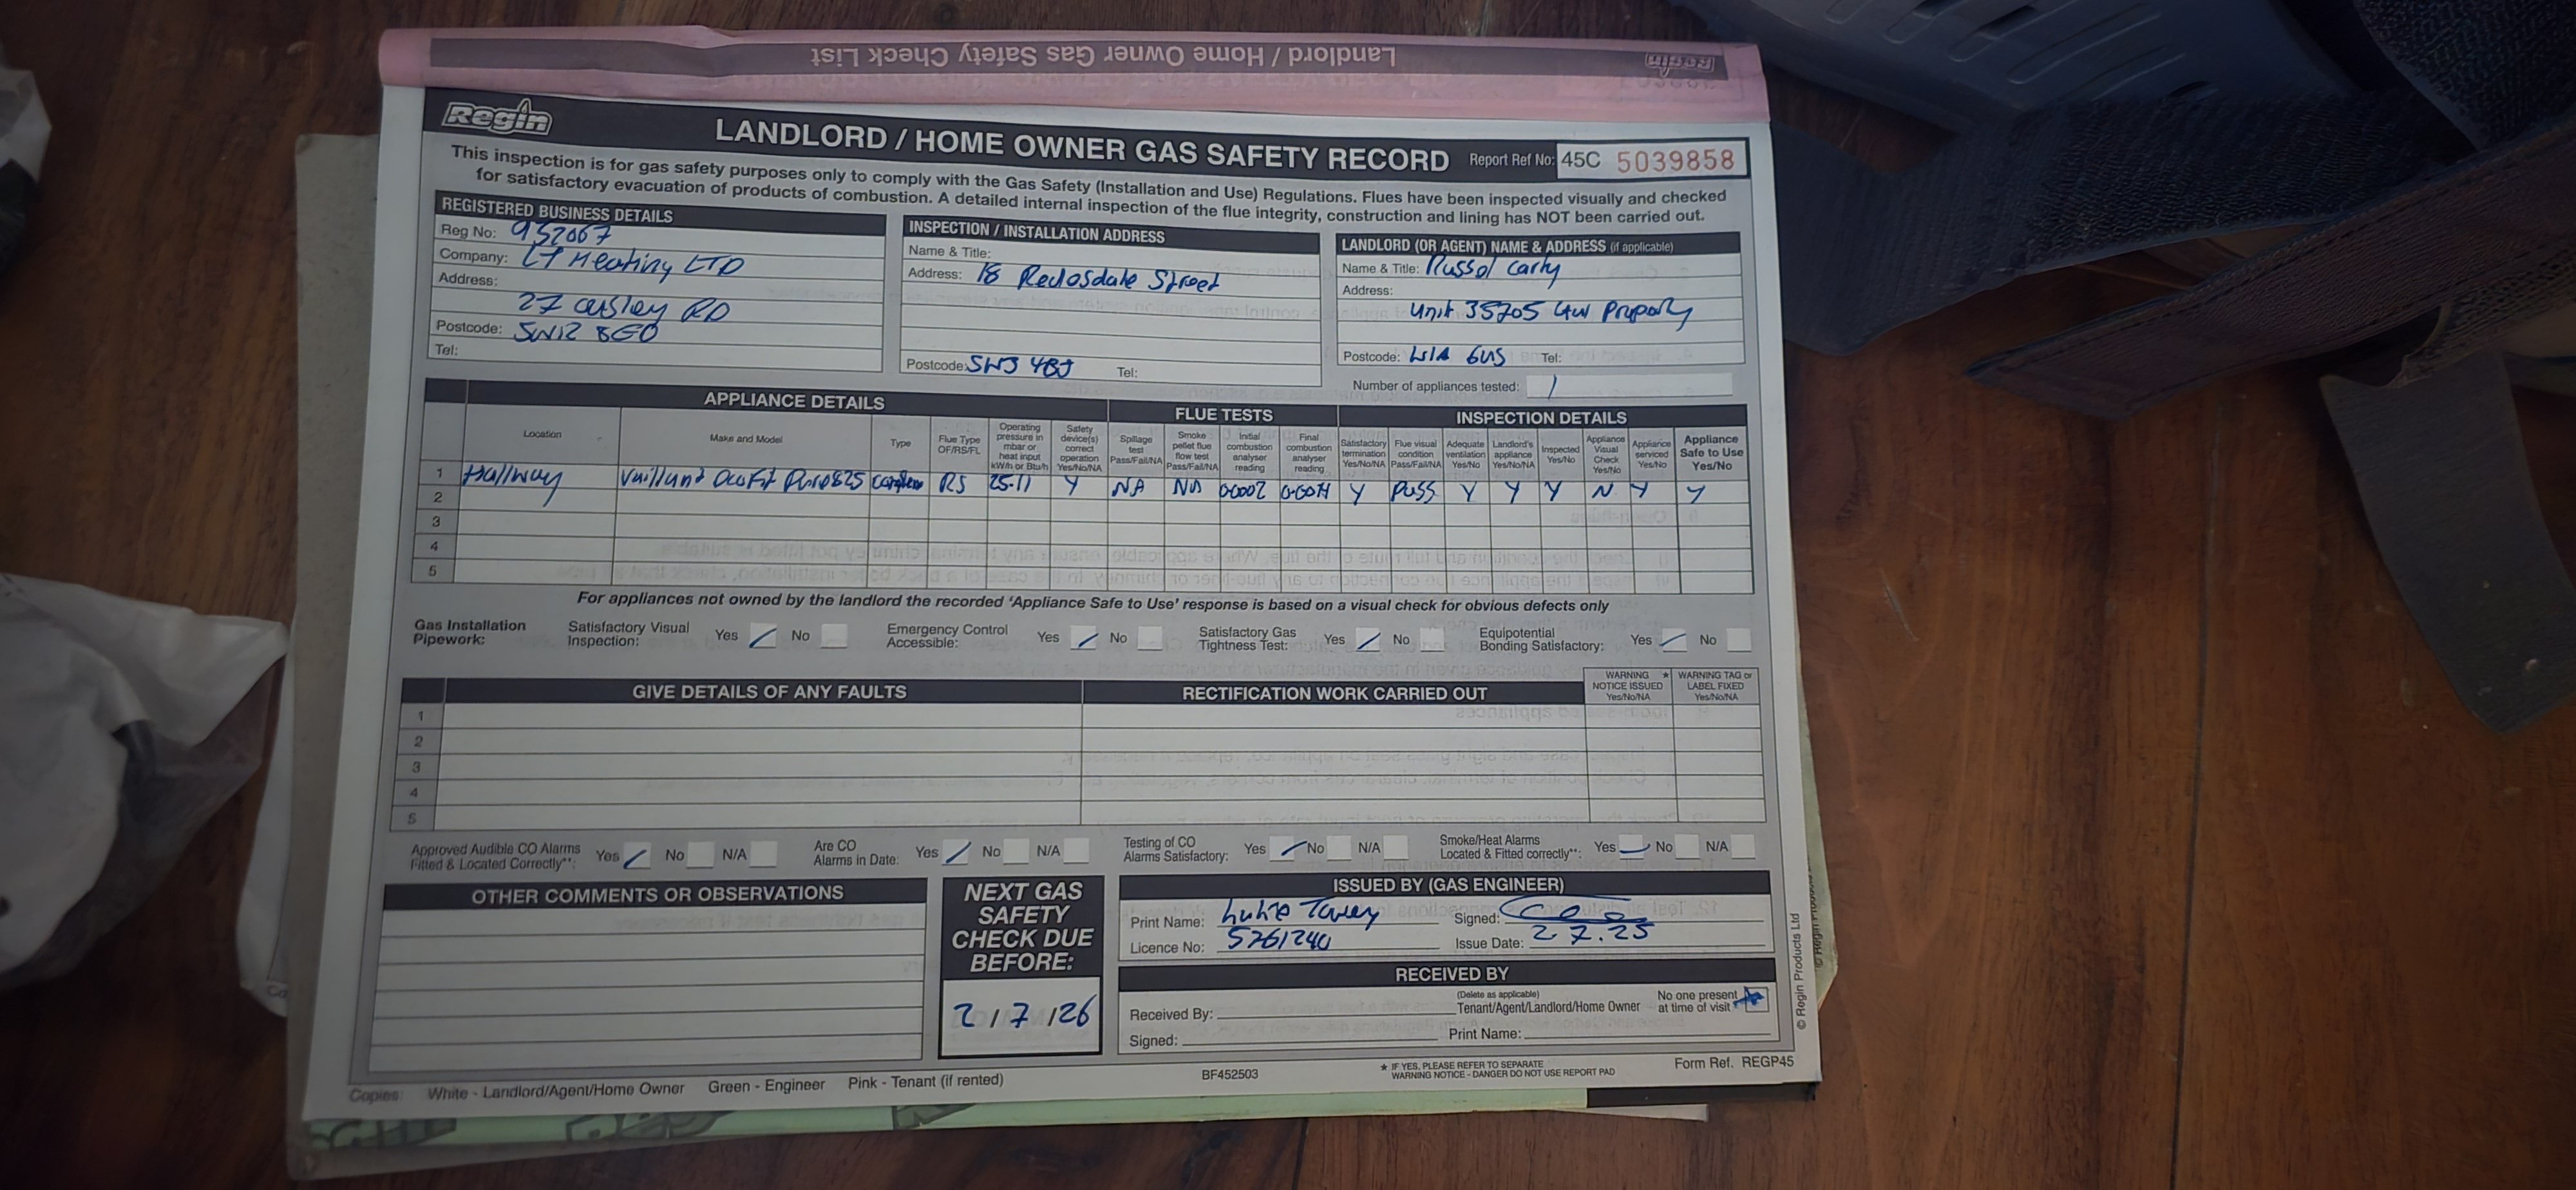 Landlord / Home Owner Gas Safety Check List
Regin
Regin
LANDLORD / HOME OWNER GAS SAFETY RECORD
Report Ref No: 45C 5039858
This inspection is for gas safety purposes only to comply with the Gas Safety (Installation and Use) Regulations. Flues have been inspected visually and checked
for satisfactory evacuation of products of combustion. A detailed internal inspection of the flue integrity, construction and lining has NOT been carried out.
REGISTERED BUSINESS DETAILS
Reg No: 952067
Company: LT Heating LTD
Address:
27 RD
Postcode: SW12 8EO
Tel:
INSPECTION / INSTALLATION ADDRESS
Name & Title:
Address: 18 Redesdale Street
Postcode: SW3 4BJ Tel:
LANDLORD (OR AGENT) NAME & ADDRESS (if applicable)
Name & Title: Russol Carly
Address:
Unit 35205
Postcode: 6US Tel:
Number of appliances tested: 1
APPLIANCE DETAILS FLUE TESTS INSPECTION DETAILS
Location
Make and Model
Type
Flue Type OF/RS/FL
Operating pressure in mbar or heat input kW/h or Btu/h
Safety device(s) correct operation Yes/No/NA
Spillage test Pass/Fail/NA
Smoke pellet flue flow test Pass/Fail/NA
Initial combustion analyser reading
Final combustion analyser reading
Satisfactory termination Yes/No/NA
Flue visual condition Pass/Fail/NA
Adequate ventilation Yes/No
Landlord's appliance Yes/No/NA
Inspected Yes/No
Appliance Visual Check Yes/No
Appliance serviced Yes/No
Appliance Safe to Use Yes/No
1 Hallway Vaillant 825 RS 25.11 Y NA NA 0.0002 Y Pass Y Y Y N Y Y
2
3
4
5
For appliances not owned by the landlord the recorded 'Appliance Safe to Use' response is based on a visual check for obvious defects only
Gas Installation Pipework: Satisfactory Visual Inspection: Yes No Emergency Control Accessible: Yes No Satisfactory Gas Tightness Test: Yes No Equipotential Bonding Satisfactory: Yes No
GIVE DETAILS OF ANY FAULTS
RECTIFICATION WORK CARRIED OUT
WARNING * NOTICE ISSUED Yes/No/NA
WARNING TAG or LABEL FIXED Yes/No/NA
1
2
3
4
5
Approved Audible CO Alarms Fitted & Located Correctly**: Yes No N/A Are CO Alarms in Date: Yes No N/A Testing of CO Alarms Satisfactory: Yes No N/A Smoke/Heat Alarms Located & Fitted correctly**: Yes No N/A
OTHER COMMENTS OR OBSERVATIONS
NEXT GAS
SAFETY
CHECK DUE
BEFORE:
2 / 7 / 26
ISSUED BY (GAS ENGINEER)
Print Name: Luke Signed:
Licence No: 5261240 Issue Date: 2 7.25
RECEIVED BY
Received By: (Delete as applicable) Tenant/Agent/Landlord/Home Owner No one present at time of visit
Signed: Print Name:
© Regin Products Ltd
Copies: White - Landlord/Agent/Home Owner Green - Engineer Pink - Tenant (if rented)
BF452503
* IF YES, PLEASE REFER TO SEPARATE
WARNING NOTICE - DANGER DO NOT USE REPORT PAD
Form Ref. REGP45